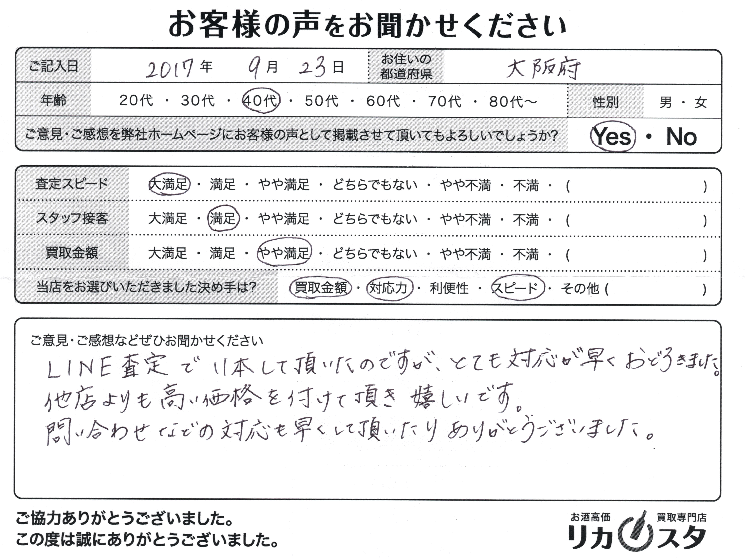 お客様の声をお聞かせください
ご記入日 2017年 9月 23日 お住いの都道府県 大阪府
年齢 20代 ・ 30代 ・ 40代 ・ 50代 ・ 60代 ・ 70代 ・ 80代〜 性別 男 ・ 女
ご意見・ご感想を弊社ホームページにお客様の声として掲載させて頂いてもよろしいでしょうか? Yes ・ No
査定スピード 大満足 ・ 満足 ・ やや満足 ・ どちらでもない ・ やや不満 ・ 不満 ・ ( )
スタッフ接客 大満足 ・ 満足 ・ やや満足 ・ どちらでもない ・ やや不満 ・ 不満 ・ ( )
買取金額 大満足 ・ 満足 ・ やや満足 ・ どちらでもない ・ やや不満 ・ 不満 ・ ( )
当店をお選びいただきました決め手は? 買取金額 ・ 対応力 ・ 利便性 ・ スピード ・ その他 ( )
ご意見・ご感想などぜひお聞かせください
LINE査定で11本して頂いたのですが、とても対応が早くおどろきました。
他店よりも高い価格を付けて頂き嬉しいです。
問い合わせなどの対応も早くして頂いたりありがとうございました。
ご協力ありがとうございました。
この度は誠にありがとうございました。
お酒高価 買取専門店
リカスタ